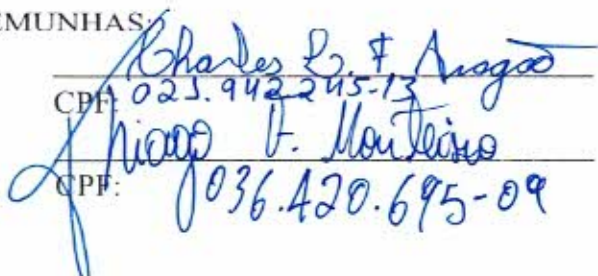 EMUNHAS:
Charles L. F. Aragão
CPF: 023.942.245-13
Thiago V. Monteiro
CPF: 036.420.695-09